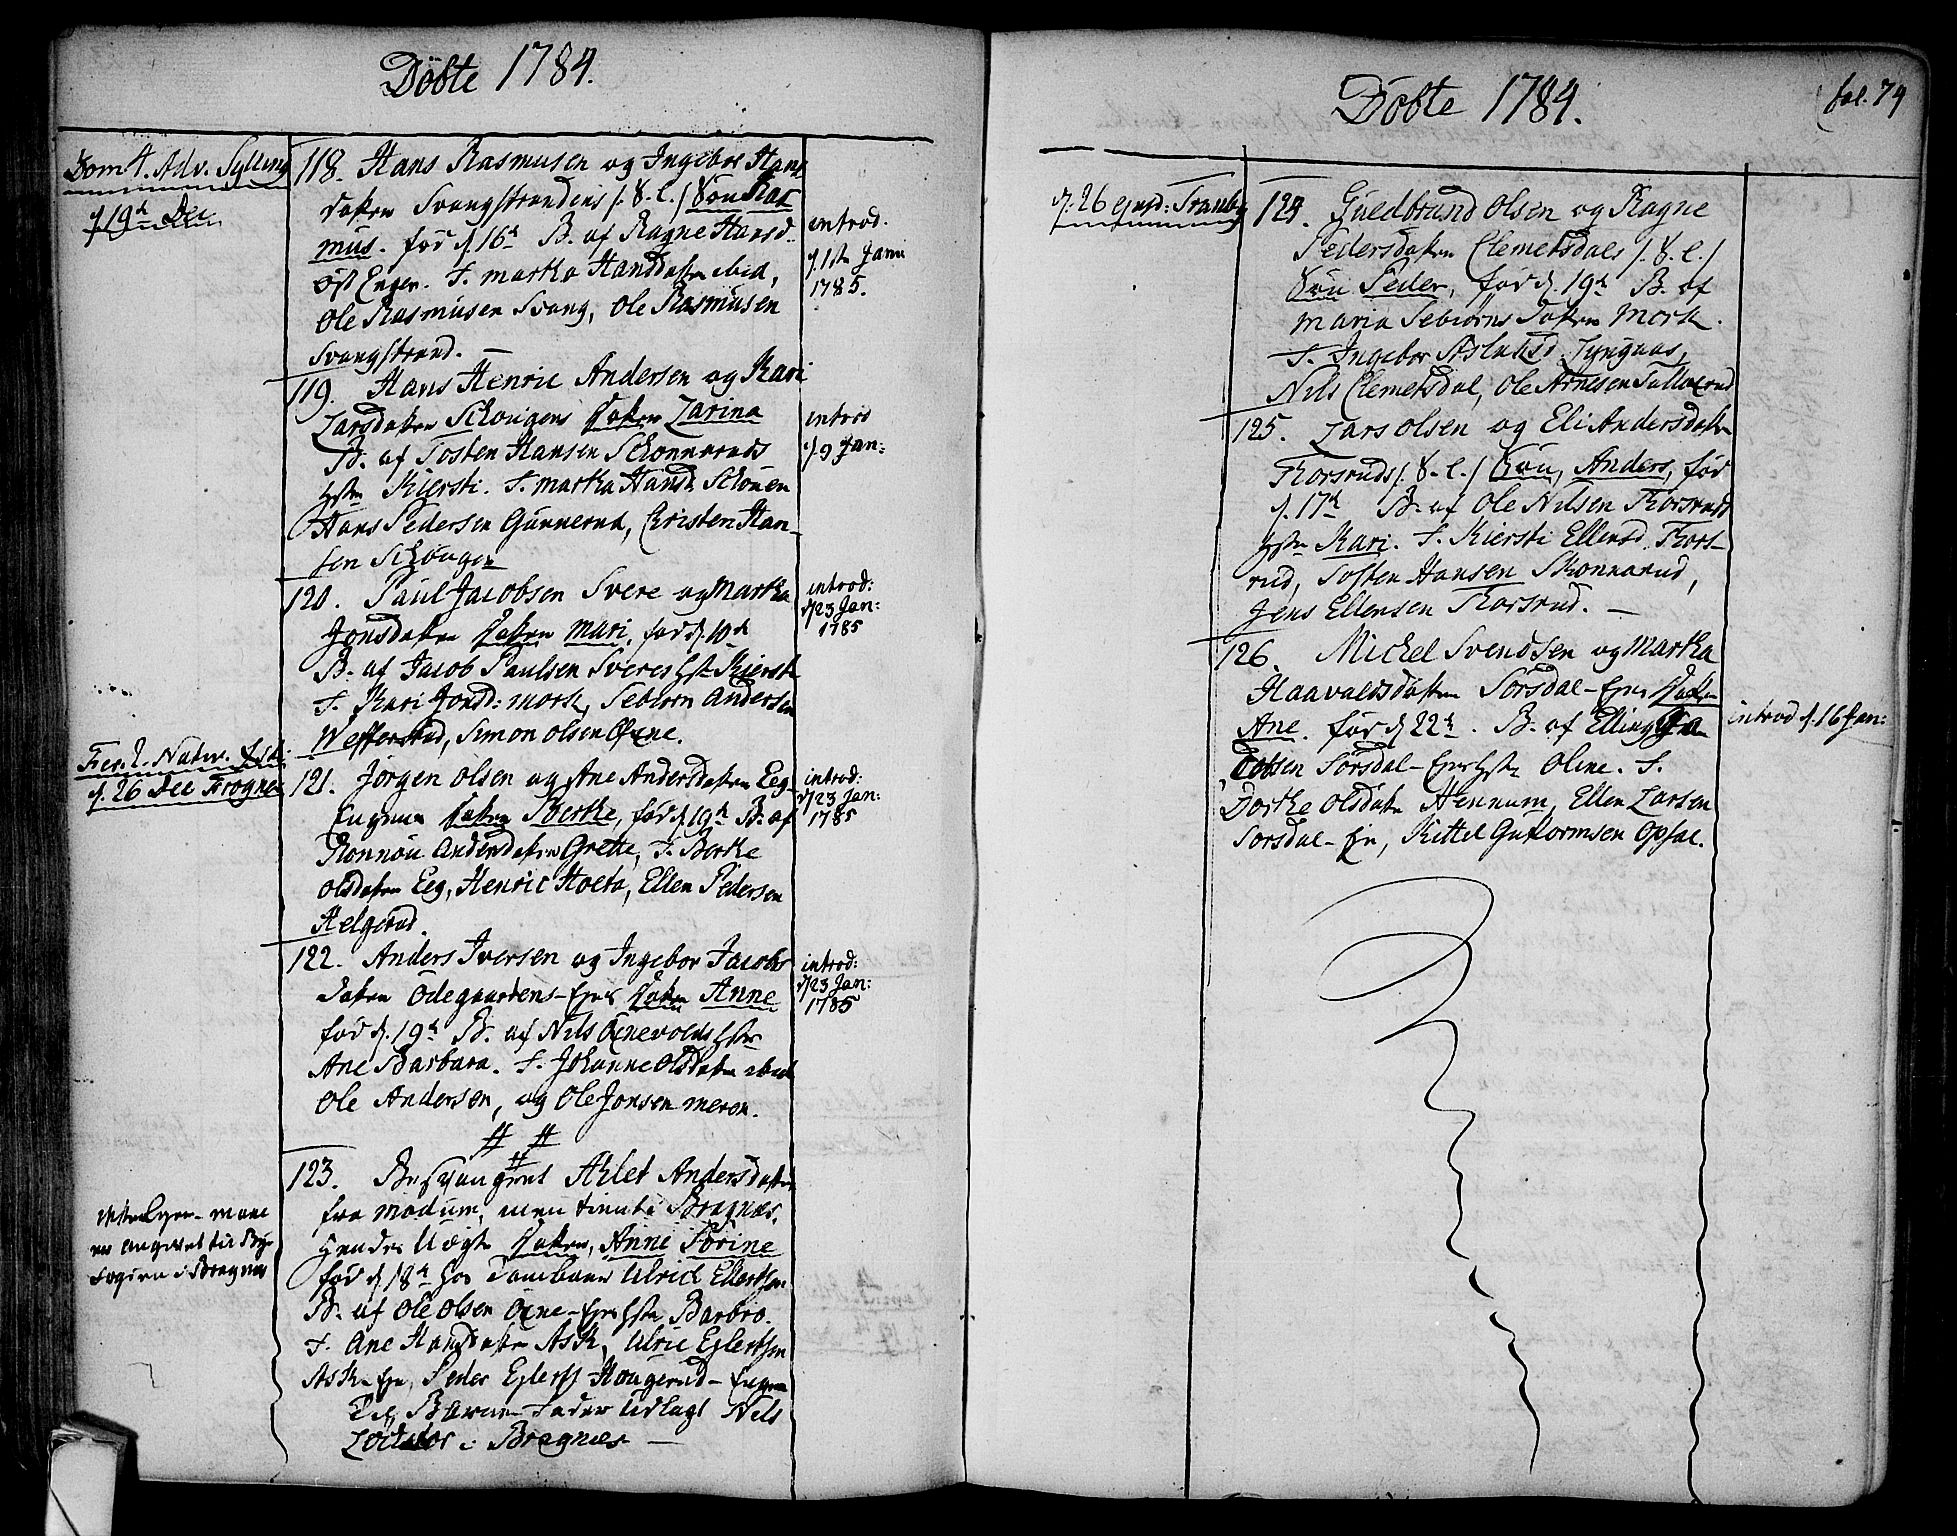 Döbte 1784.
Dom 4. Adv. Sylling
d. 19de Dec
118. Hans Rasmusen og Ingebor Hans
datters Svangstrandens /: S. l. / Sön Ras
mus. föd d. 16de B. af Ragne Hansd:
Engen. F. Martha Hansdatter ibid,
Ole Rasmusen Svang, Ole Rasmusen
Svangstrand. —
introd.
d. 1ste Janu
1785.
119. Hans Henric Andersen og Kari
Larsdatters datter Larina
B. af Tosten Hansen
Hstr Kiersti. F. Martha Hansd
Hans Pedersen Gunnerud, Christen Han-
sen
introd
d. 9 Jan:
120. Paul Jacobsen Svere og Martha
Jonsdatters datter Mari, föd d. 10de
B. af Jacob Paulsen Sveres Hstr Kiersti
F. Kari Jonsd: Morsk, Sebiörn Andersen
Simon Olsen
introd:
d. 23 Jan:
1785
Fer. 2. Nativ.
d. 26 Dec Frogner
121. Jörgen Olsen og Ane Andersdatters Eeg-
Eugnen datter Berthe, föd d. 19de B. af
Rönnou Andersdatter Grette, F. Berthe
Olsdatter Eeg, Henric Hoeta, Ellen Pedersen
Helgerud.
introd:
d. 23 Jan:
1785
122. Anders Iversen og Ingebor Jacobs
datters Ödegaardens-Eyer datter Anne
föd d. 19de B. af Nils Hstr
Ane Barbara. F. Johanne Olsdatter ibid
Ole Andersen, og Ole Jonsen Meren.
introd:
d. 23 Jan:
1785
123. Ahlet Andersdatter
fra Modum, men tiente i Bragnæs,
Hendes Uægte datter, Anne Sörine
föd d. 18de hos Ulrich Ellertsen
B. af Ole Olsen Hstr Barbro.
F. Ane Hansdatter Ask, Ulric Ejlertsen
Ask-Eje, Peder Ejlerts Haugerud-
Til Barne-Fader Udlagt Nils
i Bragnæs —
er angivet til
i Bragnæs
Döbte 1784.
fol. 79
d. 26 Tranby
124. Guldbrand Olsen og Ragne
Pedersdatters Clemetsdals /: S. l. /
Sön Peder, föd d. 19de B. af
Maria Sebiörnsdatter Mork.
F. Ingebor Lyngaas,
Nils Clemetsdal, Ole Arnesen
125. Lars Olsen og Eli Andersdatters
Thorsruds /: S. l. / Sön, Anders, föd
d. 17de B. af Ole Nilsen Thorsruds
Hstr Kari. F. Kiersti Ellensd. Thors-
rud, Tosten Hansen Skonnarud,
Jens Ellensen Thorsrud. —
126. Michel Svendsen og Martha
Haavaldsdatters Sörsdal-Ejes datter
Ane. föd d. 22de. B. af Elling Ja
cobsen Sörsdal-Ejes Hstr Oline. F.
Dorthe Olsdatter Hennum, Ellen Larsen
Sörsdal-Eje, Kittel Guttormsen Opsal.
introd d. 16 Jan: